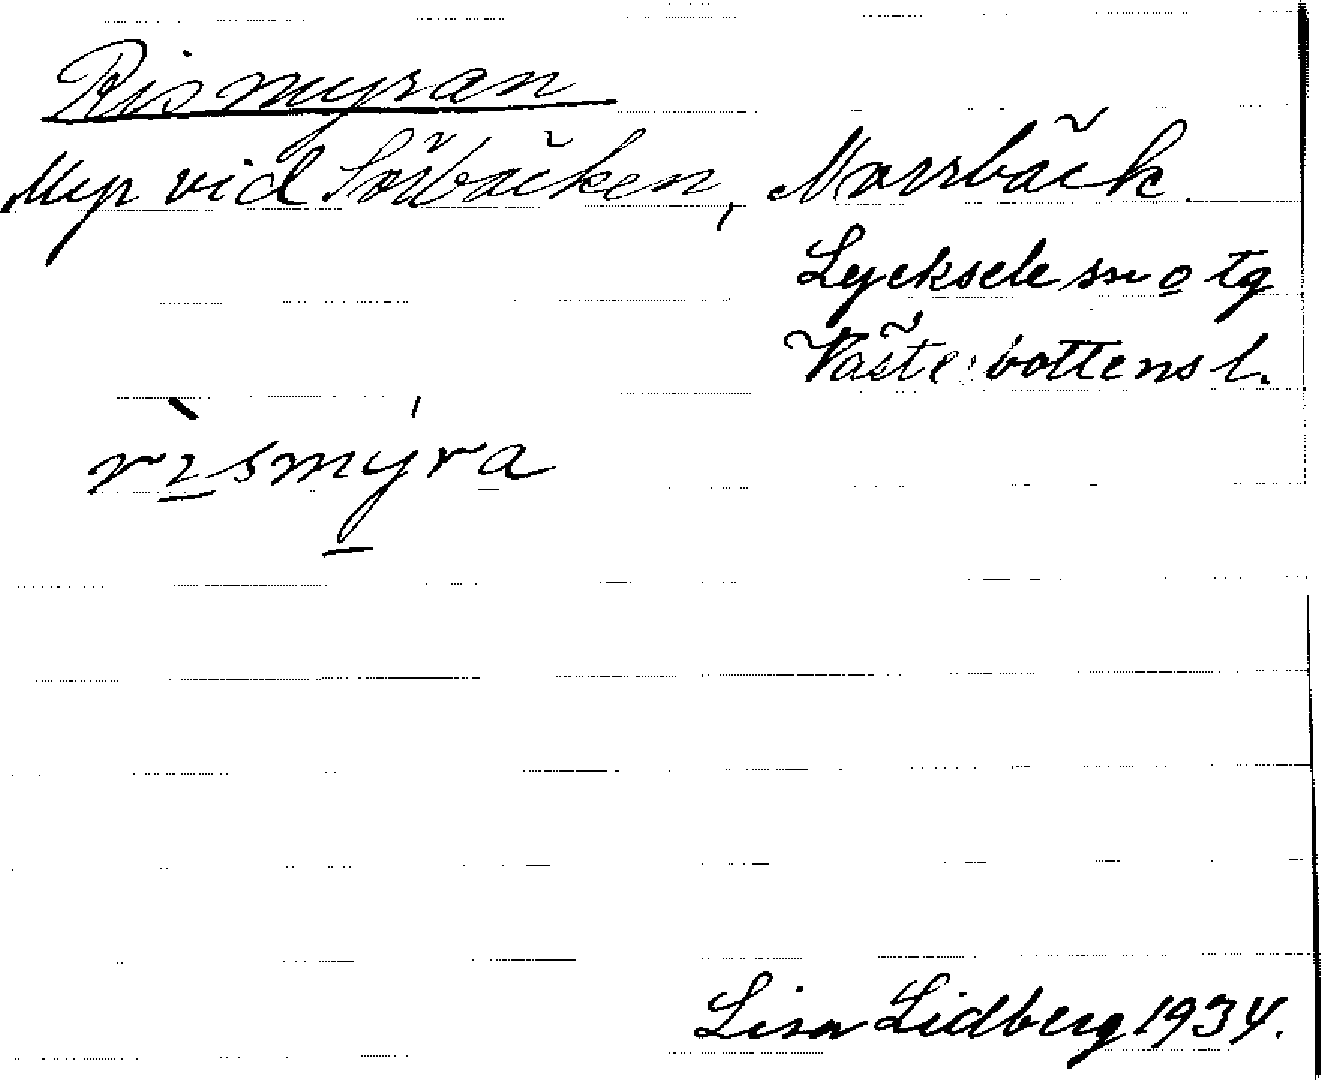 Rismyran
Myr vid Sörbäcken, Norrbäck
Lycksele sn o tg
Västerbottens l.
rìsmýra
Lisa Lidberg 1934.